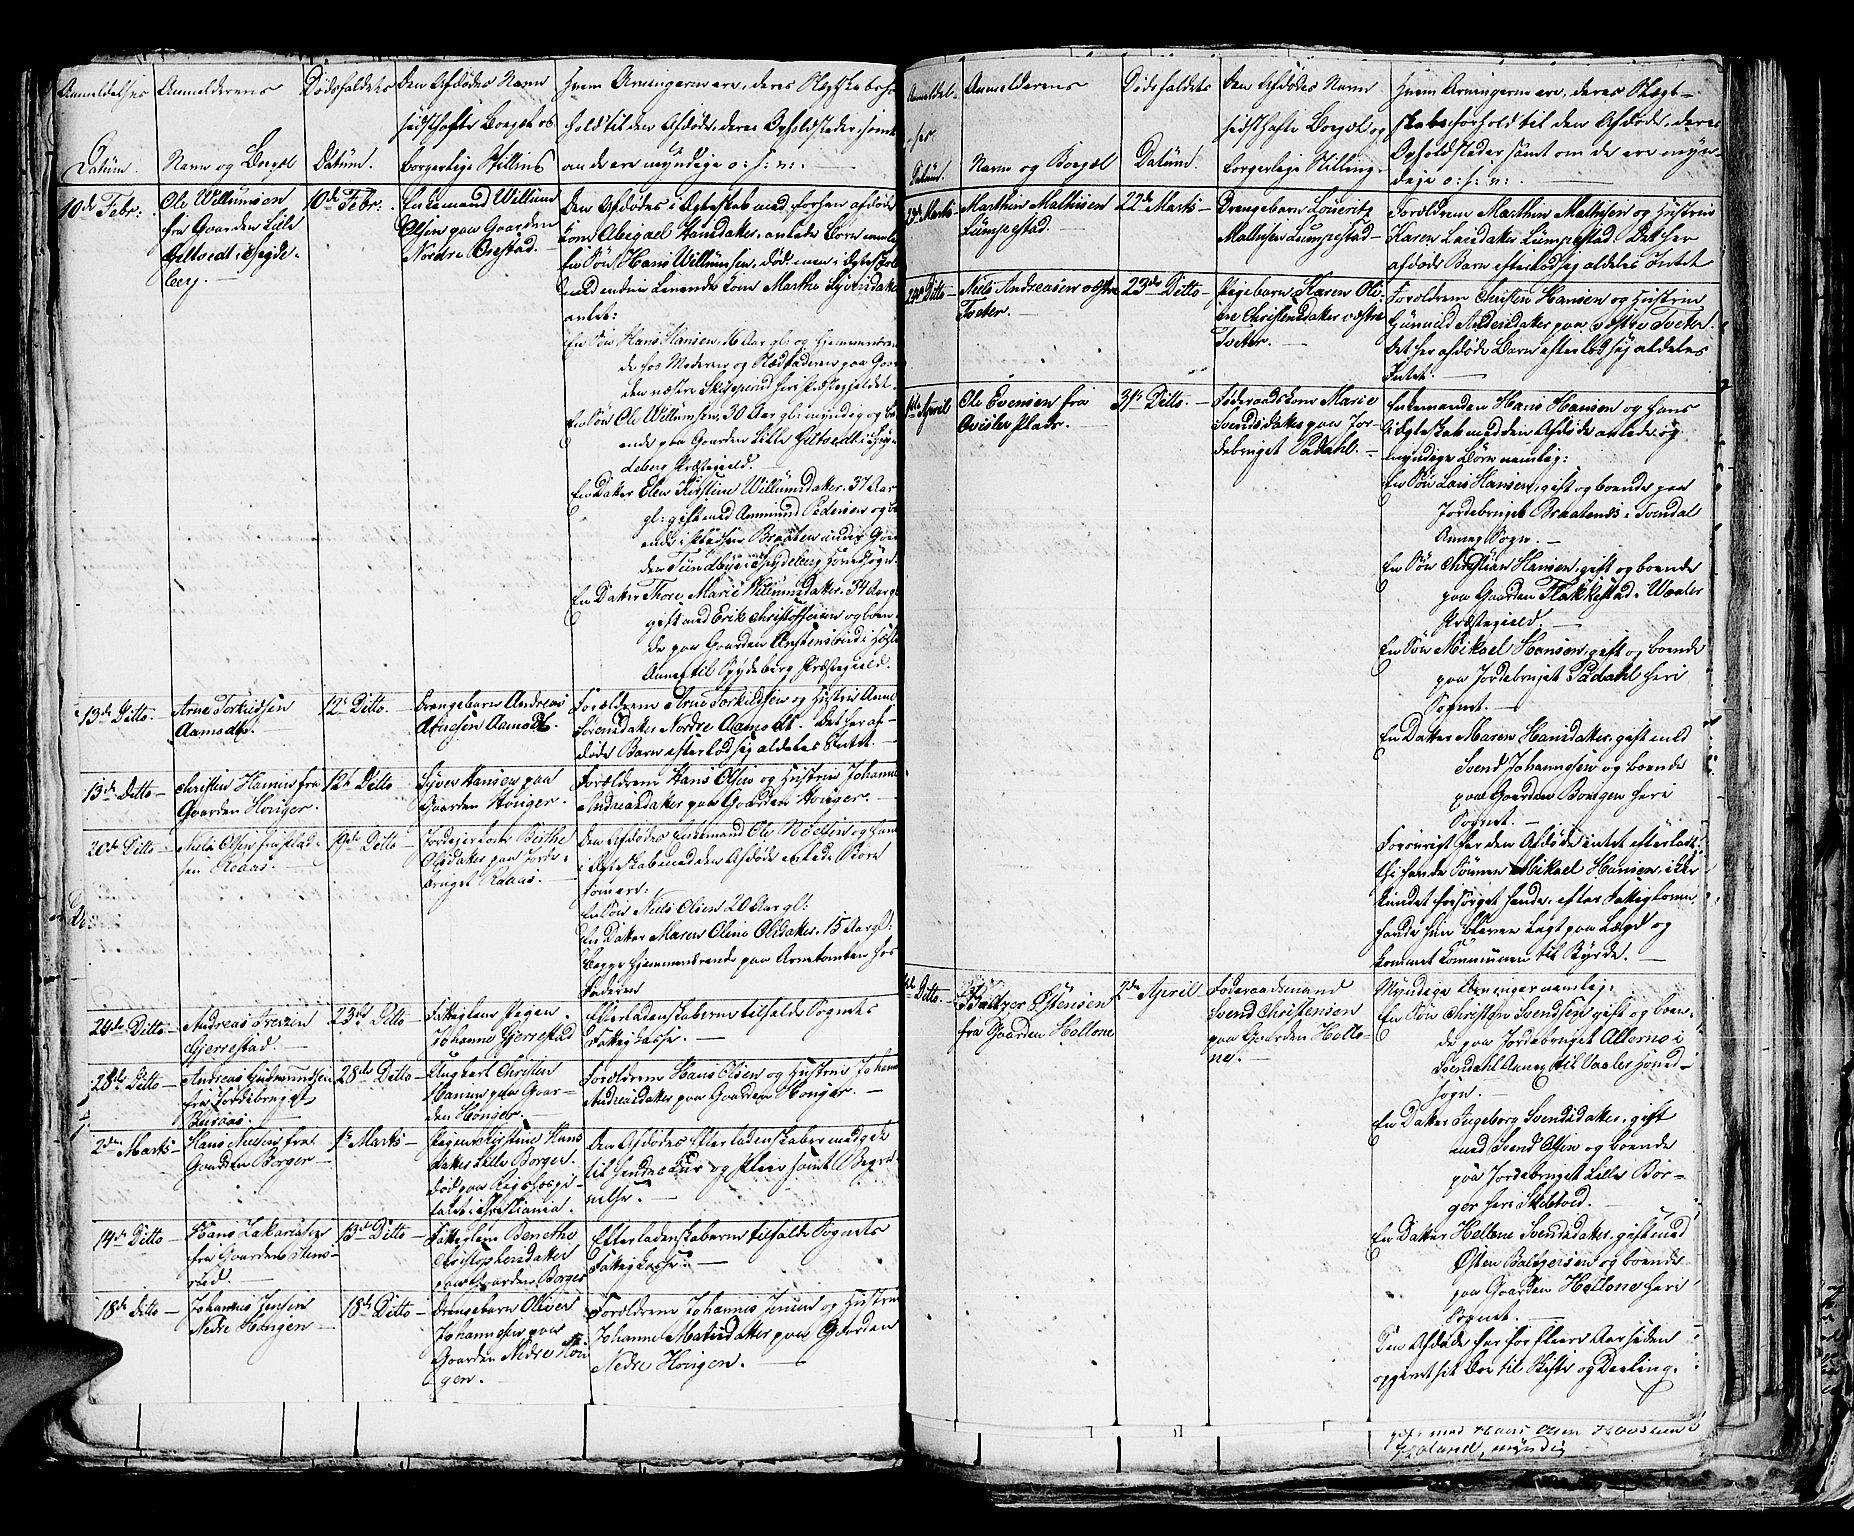 Anmeldelses
Datum.
Anmelderens
Navn og Boepæl
Dødsfaldets
Datum.
Den Afdødes Navn
sidsthafte Boepæl og
borgerlige Stilling
Hvem Arvingerne ere, deres Slægtskabsfor-
hold til den Afdøde, deres Opholdsteder, samt
om de ere myndige o: s: v:
10de Febr:
Ole Willumsen
fra Gaarden Lille
Hiltvedt i Spyde-
berg.
10de Febr:
Enkemand Willum
Olsen paa Gaarden
Nordre
Den Afdødes i Ægteskab med forhen afdøde
Kone Abigael Hansdatter, avlede Børn
En Søn Hans Willumsen, død, men i Ægteskab
med endnu levende Kone Marthe
avlet:
En Søn Hans Hansen, 6 Aar gl: og hjemmeværen-
de hos Moderen og Stedfaderen paa Gaar-
den
En Søn Ole Willumsen, 30 Aar gl: myndig og bo-
ende paa Gaarden Lille Hiltvedt i Spy-
deberg Præstegield.
En Datter Elen Kirstine Willumsdatter, 37 Aar
gl: gift med Ammund Pedersen og bo-
ende i Pladsen Braaten under Gaar-
den i Spydeberg Hovedsogn.
En Datter Thore Marie Willumsdatter, 34 Aar gl
gift med Erik Christophersen og boen-
de paa Gaarden
Annex til Spydeberg Præstegield.
13de Ditto.
Arne Torkildsen
Aamodt.
12te Ditto.
Drengebarn Andreas
Arnesen Aamodt
Forældrene Arne Torkildsen og Hustrue Anne
Sørensdatter Nordre Aamodt. Det her af-
døde Barn efterlod sig aldeles Intet.
13de Ditto
Christen Hansen fra
Gaarden Honger.
12te Ditto
Syver Hansen paa
Gaarden Honger.
Forældrene Hans Olsen og Hustrue Johanne
Andreasdatter paa Gaarden Honger.
20de Ditto
Niels Olsen fra Plad-
sen Raaas.
19de Ditto
Berthe
Olsdatter paa Jorde-
bruget Raaas.
Den Afdødes Enkemand Ole Nielsen og hans
i Ægteskab med den Afdøde avlede Børn
som ere:
En Søn Niels Olsen 20 Aar gl:
En Datter Maren Oline Olsdatter, 15 Aar gl:
Begge hjemmeværende paa hos
Faderen
24de Ditto
Andreas
Gjerrestad
23de Ditto
Fattiglem Pigen
Johanne Gjerrestad
Efterladenskaberne tilfaldt Sognets
Fattigkasse.
28de Ditto
Andreas Gudmundsen
fra Jordebruget
28de Ditto
Ungkarl Christen
Hansen paa Gaar-
den Honger.
Forældrene Hans Olsen og Hustrue Johanne
Andreasdatter paa Gaarden Honger.
2den Marts
Hans Nielsen fra
Gaarden Borger
1te Marts
Pigen Kirstine Hans
datter Lille Borger.
død paa Rigshospi-
talet i Christiania
Den Afdødes Efterladenskaber medgik
til hendes Cur og Pleie samt Begra-
velse.
14de Ditto
Hans Zakariasen
fra Gaarden Stens-
rud.
13de Ditto
Fattiglem Benethe
Christophersdatter
paa Gaarden Borger
Efterladenskaberne tilfaldt Sognets
Fattigkasse.
18de Ditto
Johannes Jensen
Nedre Hongen
18de Ditto
Drengebarn Oliver
Johannesen paa
Gaarden Nedre Hon-
gen.
Forældrene Johannes Jensen og Hustrue
Johanne Matisdatter paa Gaarden
Nedre Hongen.
Anmeldel-
ses
Datum.
Anmelderens
Navn og Boepæl
Dødsfaldets
Datum.
Den Afdødes Navn
sidsthafte Boepæl og
borgerlige Stilling
Hvem Arvingerne ere, deres Slægt-
skabsforhold til den Afdøde, deres
Opholdsteder samt om de ere myn-
dige o: s: v:
Marts
Marthin Mathisen
Lumpestad.
22de Marts
Drengebarn Louritz
Mathisen Lumpestad
Forældrene Marthin Mathisen og Hustrue
Karen Larsdatter Lumpestad. Det her
afdøde Barn efterlod sig aldeles Intet
24de Ditto
Niels Andreasen østre
Tveter.
23de Ditto
Pigebarn Karen Oli-
ve Christensdatter vestre
Tveter.
Forældrene Christen Hansen og Hustrue
Gunnild Andersdatter paa vestre Tveter.
Det her afdøde Barn efterlod sig aldeles
Intet.
1ste April
Ole Evensen fra
Plads.
31te Ditto.
Føderaadskone Marie
Svendsdatter paa Jor-
debruget Sødahl.
Enkemanden Hans Hansen og hans
i Ægteskab med den Afdøde avlede og
myndige Børn nemlig:
En Søn Lars Hansen, gift og boende paa
Jordebruget Braatenes i Svendal
Annex Sogn.
En Søn Christian Hansen, gift og boende
paa Gaarden Flakkestad i Waaler
Præstegield.
En Søn Mikael Hansen, gift og boende
paa Jordebruget Sødahl her i
Sognet.
En Datter Maren Hansdatter, gift med
Svend Johannesen og boende
paa Gaarden Bongen her i
Sognet.
Forøvrigt har den Afdøde intet efterladt
thi hendes Sønnen Mikael Hansen, ikke
kundet forsørget hende, efter Fattigkom
hende hun bleven lagt paa Lægd og
kommet Communen til Byrde.
Ditto.
Baltzer Østensen
fra Gaarden Haltone
2den April
Føderaadsmand
Svend Christenson
paa Gaarden Holto-
ne.
Myndige Arvinger nemlig:
En Søn Christen Svendsen gift og boen-
de paa Jordebruget Allerno i
Svendahl Annex til Vaaler Hoved-
sogn.
En Datter Ingeborg Svendsdatter, gift
med Svend Olsen og boende
paa Jordebruget Lille Bor-
ger her i Skibtved.
En Datter Hellene Svendsdatter, gift med
Østen Baltzersen og boende
paa Gaarden Holtone her i
Sognet.
Den Afdøde har for flere Aar siden
opgivet sit Boe til Skifte og Deeling.
gift med Hans Olsen
myndig